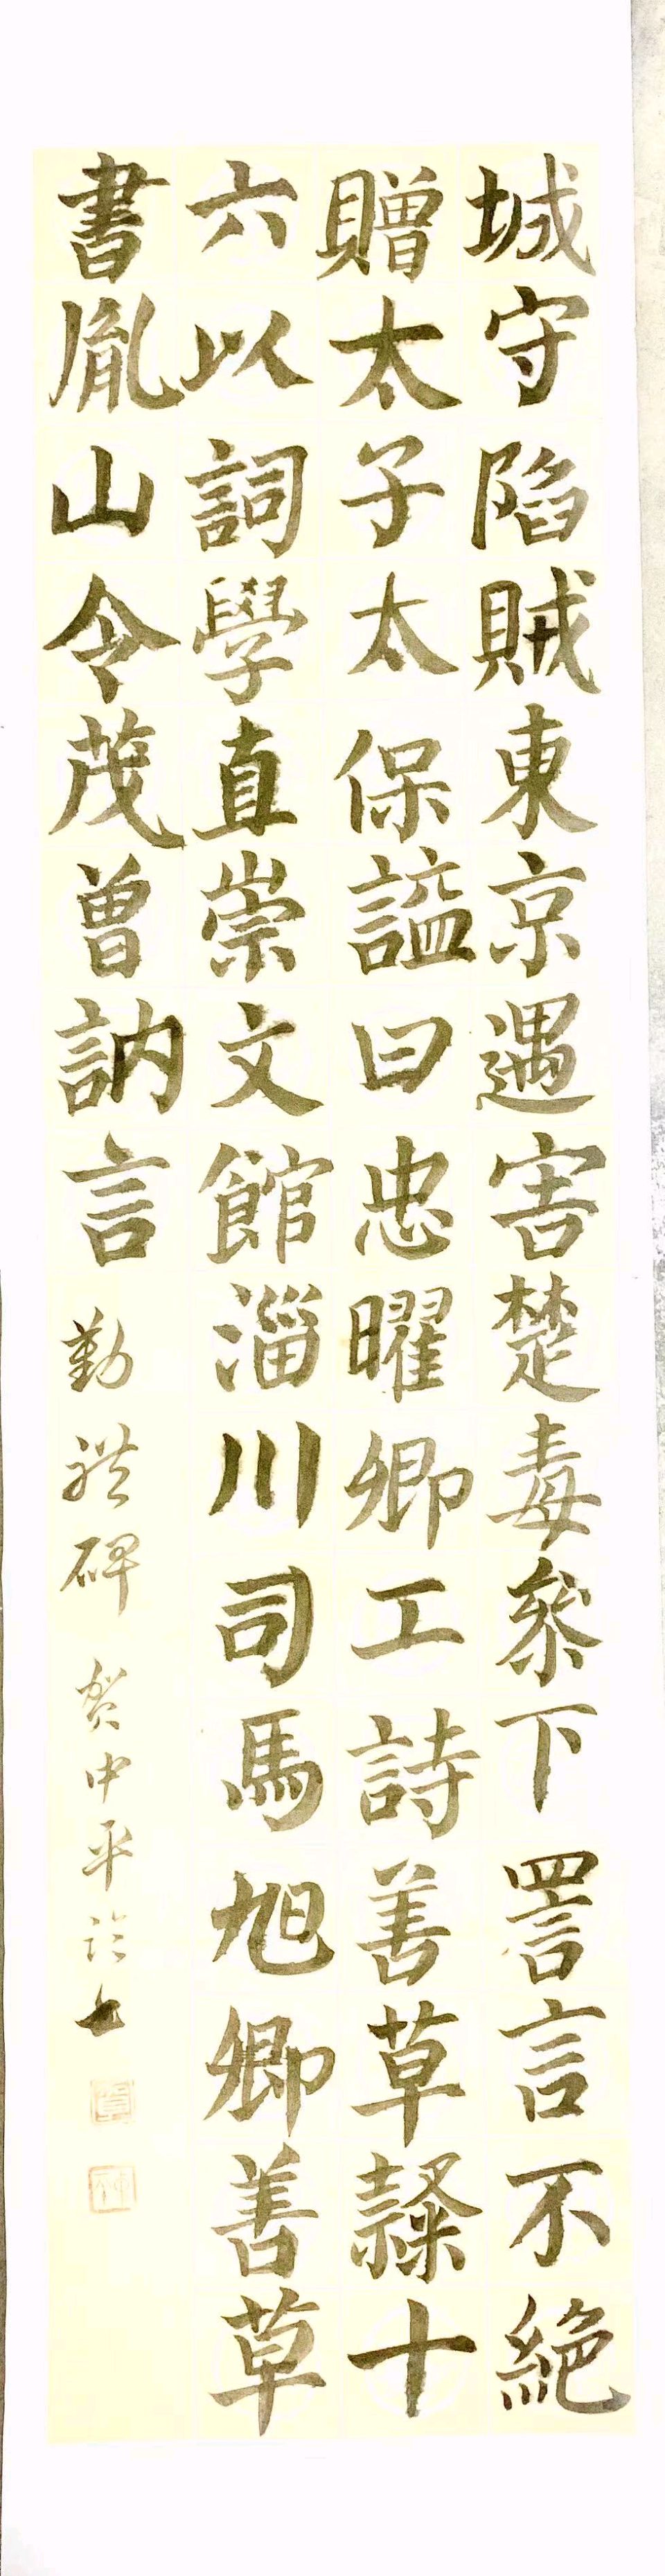 城守陷賊東京遇害楚毒參下詈言不絕
贈太子太保謚曰忠曜卿工詩善草隸十
六以詞學直崇文館淄川司馬旭卿善草
書胤山令茂曾訥言 勤禮碑 賀中平臨書